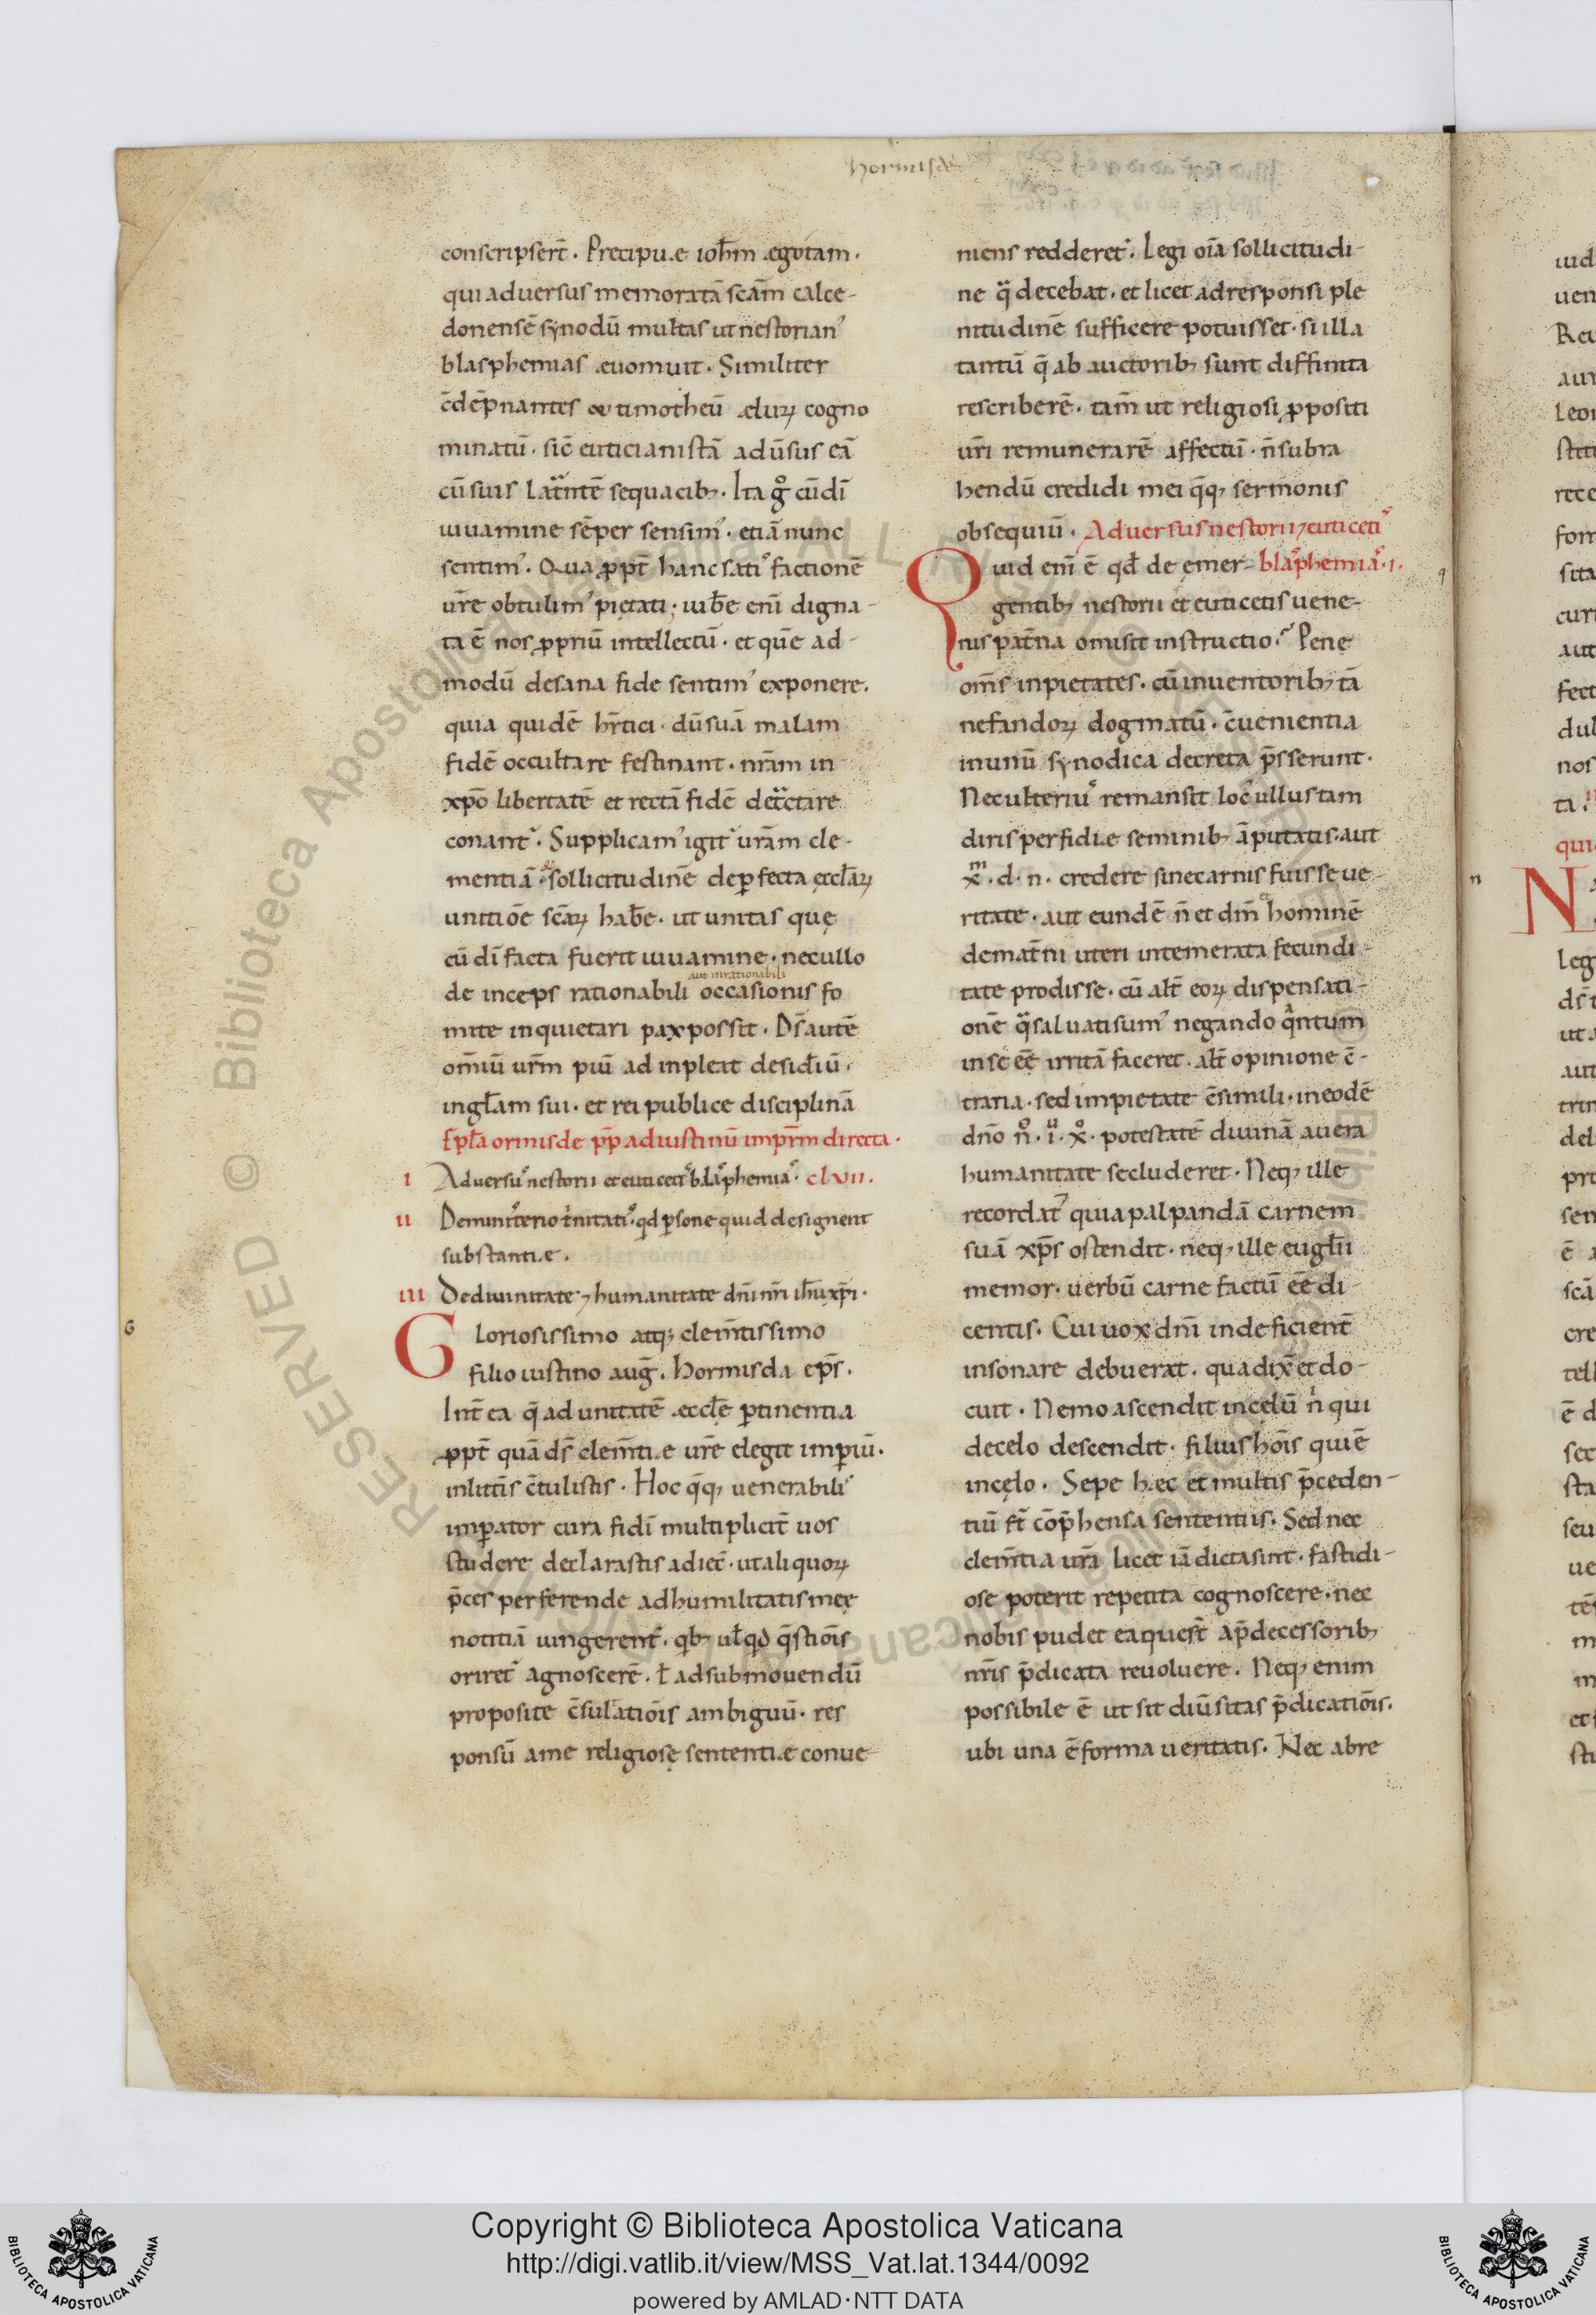 hormisde
conscripser̄t . Precipuæ ioh̄m ægotam .
qui aduersus memoratā scām calce-
donensē synodū multas ut nestorian'
blasphemias æuomuit . Similiter
c̄dēpnantes & timotheū ædurꝝ cogno
minatū . sic̄ euticianistā adūsus eā
cū suis Lat̄ntē sequacib; . Ita gͦ cū dī
iuuamine sēper sensim' . etiā nunc
sentim' . Qua ꝓpt̄ hanc sati' factionē
ur̄e obtulim' pietati ; iub̄e enī digna-
ta ē nos ꝓpriū intellectū . et quē ad-
modū de sana fide sentim' exponere .
quia quidē hr̄tici . dū suā malam
fidē occultare festinant . nrām in
xp̄o libertatē et rectā fidē dectare
conant̄ . Supplicam' igit̄ urām cle-
mentiā . sollicitudinē de ꝑfecta ęccl̄aꝝ
unitiōe sc̄aꝝ hab̄e . ut unitas quę
cū dī facta fuerit iuuamine . necullo
aut inrationabili
de inceps rationabili occasionis fo
mite inquietari pax possit . Ds̄ autē
om̄iū ur̄m piū ad inpleat desid̄iū .
in gl̄am sui . et rei publice disciplinā
Ep̄la ormisde pp̄ ad iustinū imp̄rm directa .
I Aduersu' nestorii et euticeti' blāphemia' . clvii .
II De minīterio t̄nitati' . qd ꝑsone quid designent
substantiæ .
III De diuinitate ⁊ humanitate dn̄i nr̄i ih̄u xp̄i .
G
Gloriosissimo atq; clem̄tissimo
filio iustino aug̃ . Hormisda ep̄s .
Int̄ ea q̄ ad unitatē æccl̄e ꝑtinentia
ꝓpt̄ quā ds̄ clem̄tiæ ur̄e elegit imꝑiū .
in litt̄is c̄tulistis . Hoc q̄q; uenerabili'
imꝑator cura fidī multiplicit̄ uos
studere declarastis adiec̄ . ut aliquoꝝ
p̄ces perferende ad humilitatis meę
notitiā iungerent̄ . qb; ul̄ qd q̄stiōis
oriret̄ agnoscerē . ł ad submouendū
proposite c̄sulatiōis ambiguū . res
ponsū ame religiosę sententiæ conue-
niens redderet̄ . Legi oīa sollicitudi-
ne q̄ decebat . et licet ad responsi ple
nitudinē sufficere potuisset . si illa
tantū q̄ ab auctorib; sunt diffinita
rescriberē . tam̄ ut religiosi ꝓpositi
ur̄i remunerarē affectū . n̄ subra
hendū credidi mei q̄q; sermonis
obsequiū . Aduersus nestorii ⁊ euticeti'
Quid enī ē qd̄ de emer- blāphemia' . I .
q
gentib; nestorii et euticetis uene-
nis pat̄na omisit instructio ? Pene
om̄s inpietates . cū inuentorib; tā
nefandoꝝ dogmatū . c̄uenientia
inunū synodica decreta p̄sserunt .
Nec ulteriu' remansit loc' ullus tam
diris perfidiæ seminib; āputatis . aut
x̄m . d . n . credere sine carnis fuisse ue-
ritate . aut eundē n̄ et dm̄ hominē
de mat̄ni uteri intemerata fecundi-
tate prodisse . cū alt̄ eoꝝ dispensati-
onē q̄ saluati sum' negando q̄ntum
in se eē irritā faceret . alt̄ opinione c̄-
traria . sed impietate c̄simili . in eodē
dn̄o n̊ . i . x̊ . potestatē diuinā auera
humanitate secluderet . Neq; ille
recordat̄ quia palpandā carnem
suā xp̄s ostendit . neq; ille eugl̄ii
memor . uerbū carne factū eē di-
centis . Cui uox dnī indeficient̄
insonare debuerat . qua dix̄ et do-
cuit . Nemo ascendit in celū n̄ qui
de celo descendit . filius hōis qui ē
in cęlo . Sepe hæc et multis p̄ceden-
tiū st̄ cōp̄hensa sententiis . Sed nec
clem̄tia ur̄ā licet iā dicta sint . fastidi-
ose poterit repetita cognoscere . nec
nobis pudet eaquest̄ ap̄decessorib;
nr̄is p̄dicata reuoluere . Neq; enim
possibile ē ut sit diūsitas p̄dicatiōis .
ubi una ē forma ueritatis . Nec abre
n
N
RESERVED © Biblioteca Apostolica Vaticana ALL RIGHTS RESERVED
Copyright © Biblioteca Apostolica Vaticana
http://digi.vatlib.it/view/MSS_Vat.lat.1344/0092
powered by AMLAD·NTT DATA
BIBLIOTECA APOSTOLICA VATICANA
BIBLIOTECA APOSTOLICA VATICANA